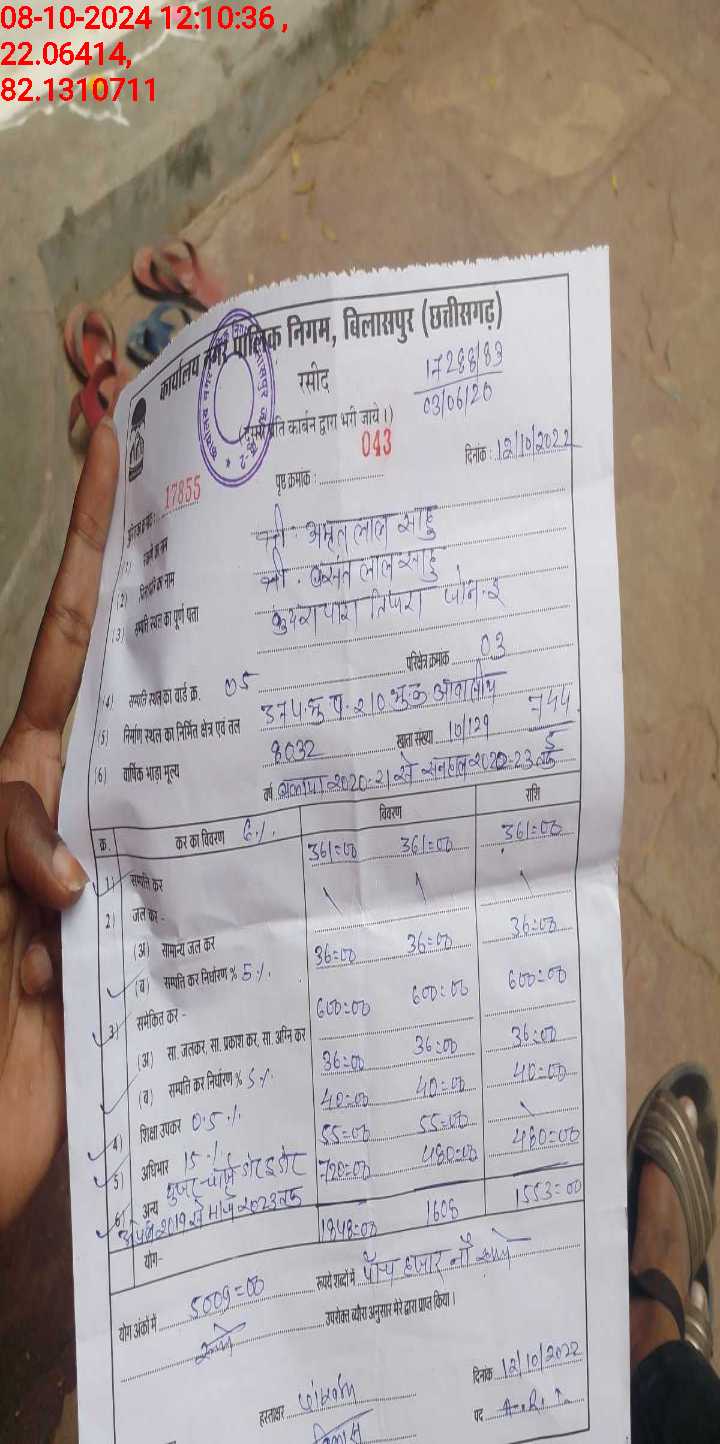 08-10-2024 12:10:36 ,
22.06414,
82.1310711
कार्यालय नगर पालिक निगम, बिलासपुर (छत्तीसगढ़)
रसीद
17288/83
03/06/20
प्रति कार्बन द्वारा भरी जाये।)
043
पृष्ठ क्रमांक :
दिनांक : 12/10/2022
17855
(1)
श्री अमृत लाल साहू
(2) का नाम
श्री . बसंत लाल साहू
(3) सम्पत्ति स्थल का पूर्ण पता
तिफरा जोन-2
परिक्षेत्र क्रमांक 03
(4) सम्पत्ति स्थल का वार्ड क्र. 05
(5) निर्माण स्थल का निर्मित क्षेत्र एवं तल
(6) वार्षिक भाड़ा मूल्य 8032 खाता संख्या 10/129 744
वर्ष बकाया 2020-21 से 2022-23 तक
क्र. कर का विवरण 6% विवरण राशि
1) सम्पत्ति कर 361=00 361=00 361=00
2) जल कर -
(अ) सामान्य जल कर
(ब) सम्पत्ति कर निर्धारण % 5% 36=00 36=00 36=00
3) समेकित कर -
(अ) सा. जलकर, सा. प्रकाश कर, सा. अग्नि कर 600=00 600=00 600=00
(ब) सम्पत्ति कर निर्धारण % 5% 36=00 36=00 36=00
4) शिक्षा उपकर 0.5% 40=00 40=00 40=00
5) अधिभार 15% 55=00 55=00
6) अन्य यूजर चार्ज 720=00 480=00 480=00
2019 से मार्च 2023 तक
योग- 1848=00 1608 1553=00
योग अंकों में 5009=00 रूपये शब्दों में पाँच हजार नौ रूपये
उपरोक्त ब्यौरा अनुसार मेरे द्वारा प्राप्त किया।
दिनांक 12/10/2022
हस्ताक्षर
पद A.R.I.